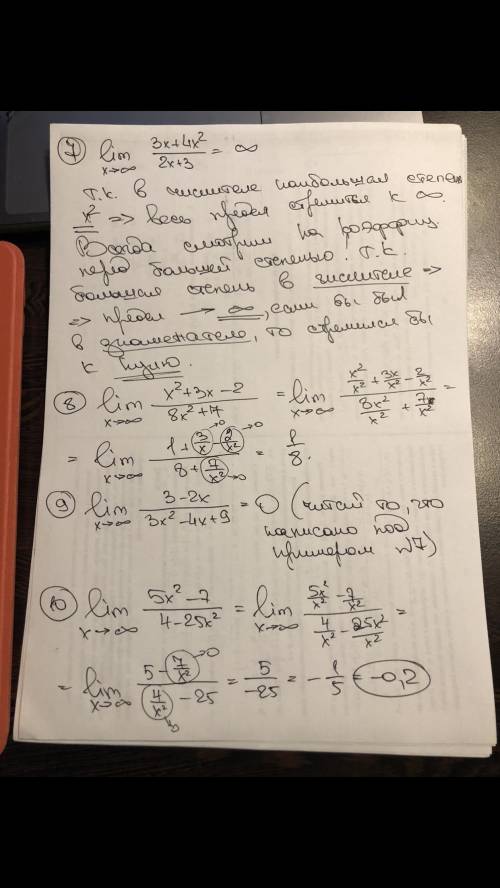 7 lim x→∞ (3x+4x²)/(2x+3) = ∞
т.к. в числителе наибольшая степень
x² => весь предел стремится к ∞.
Всегда смотрим на коэффициц.
перед большей степенью. Т.к.
большая степень в числителе =>
=> предел → ∞, если бы был
в знаменателе, то стремился бы
к нулю.
8 lim x→∞ (x²+3x-2)/(8x²+17) = lim x→∞ (x²/x² + 3x/x² - 2/x²)/(8x²/x² + 7/x²) =
= lim x→∞ (1 + 3/x →0 - 2/x² →0)/(8 + 7/x² →0) = 1/8.
9 lim x→∞ (3-2x)/(3x²-4x+9) = 0 (читай то, что
написано под
примером №7)
10 lim x→∞ (5x²-7)/(4-25x²) = lim x→∞ (5x²/x² - 7/x²)/(4/x² - 25x²/x²) =
= lim x→∞ (5 - 7/x² →0)/(4/x² →0 - 25) = 5/-25 = -1/5 = -0,2